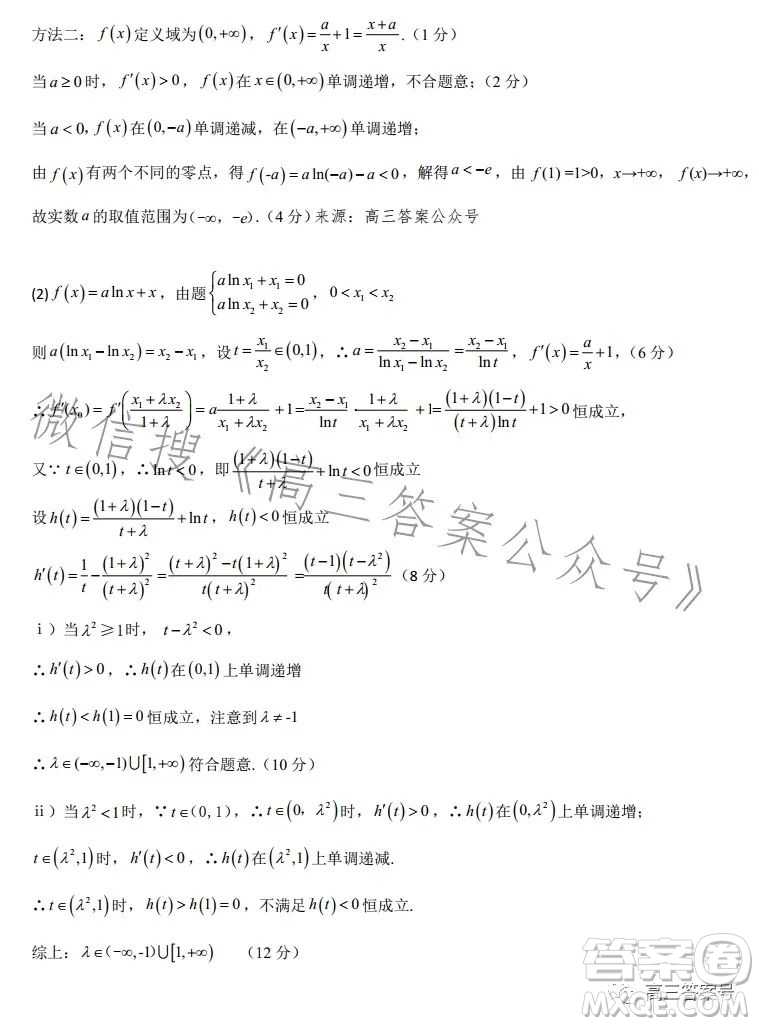 方法二：f(x)定义域为(0,+∞)，f′(x)=a/x+1=(x+a)/x.（1 分）
当a≥0时，f′(x)>0，f(x)在x∈(0,+∞)单调递增，不合题意；（2 分）
当a<0,f(x)在(0,-a)单调递减，在(-a,+∞)单调递增；
由f(x)有两个不同的零点，得f(-a)=aln(-a)-a<0，解得a<-e，由 f(1) =1>0，x→+∞， f(x)→+∞，
故实数a的取值范围为(-∞，-e).（4 分）来源：高三答案公众号
(2)f(x)=alnx+x，由题{alnx₁+x₁=0 alnx₂+x₂=0，0<x₁<x₂
则a(lnx₁-lnx₂)=x₂-x₁，设t=x₁/x₂∈(0,1)，∴a=(x₂-x₁)/(lnx₁-lnx₂)=(x₂-x₁)/lnt，f′(x)=a/x+1,（6 分）
∴f′(x₀)=f′((x₁+λx₂)/(1+λ))=a(1+λ)/(x₁+λx₂)+1=(x₂-x₁)/lnt·(1+λ)/(x₁+λx₂)+1=(1+λ)(1-t)/((t+λ)lnt)+1>0恒成立，
又∵t∈(0,1)，∴lnt<0，即(1+λ)(1-t)/(t+λ)+lnt<0恒成立
设h(t)=(1+λ)(1-t)/(t+λ)+lnt，h(t)<0恒成立
h′(t)=1/t-(1+λ)²/(t+λ)²=((t+λ)²-t(1+λ)²)/(t(t+λ)²)=(t-1)(t-λ²)/(t(t+λ)²)（8 分）
ⅰ）当λ²≥1时，t-λ²<0，
∴h′(t)>0，∴h(t)在(0,1)上单调递增
∴h(t)<h(1)=0恒成立，注意到λ≠-1
∴λ∈(-∞,-1)∪[1,+∞)符合题意.（10 分）
ⅱ）当λ²<1时，∵t∈(0,1)，∴t∈(0，λ²)时，h′(t)>0，∴h(t)在(0,λ²)上单调递增；
t∈(λ²,1)时，h′(t)<0，∴h(t)在(λ²,1)上单调递减.
∴t∈(λ²,1)时，h(t)>h(1)=0，不满足h(t)<0恒成立.
综上：λ∈(-∞,-1)∪[1,+∞) （12 分）
微信搜《高三答案公众号》
答案圈
MXQE.COM
高三答案号